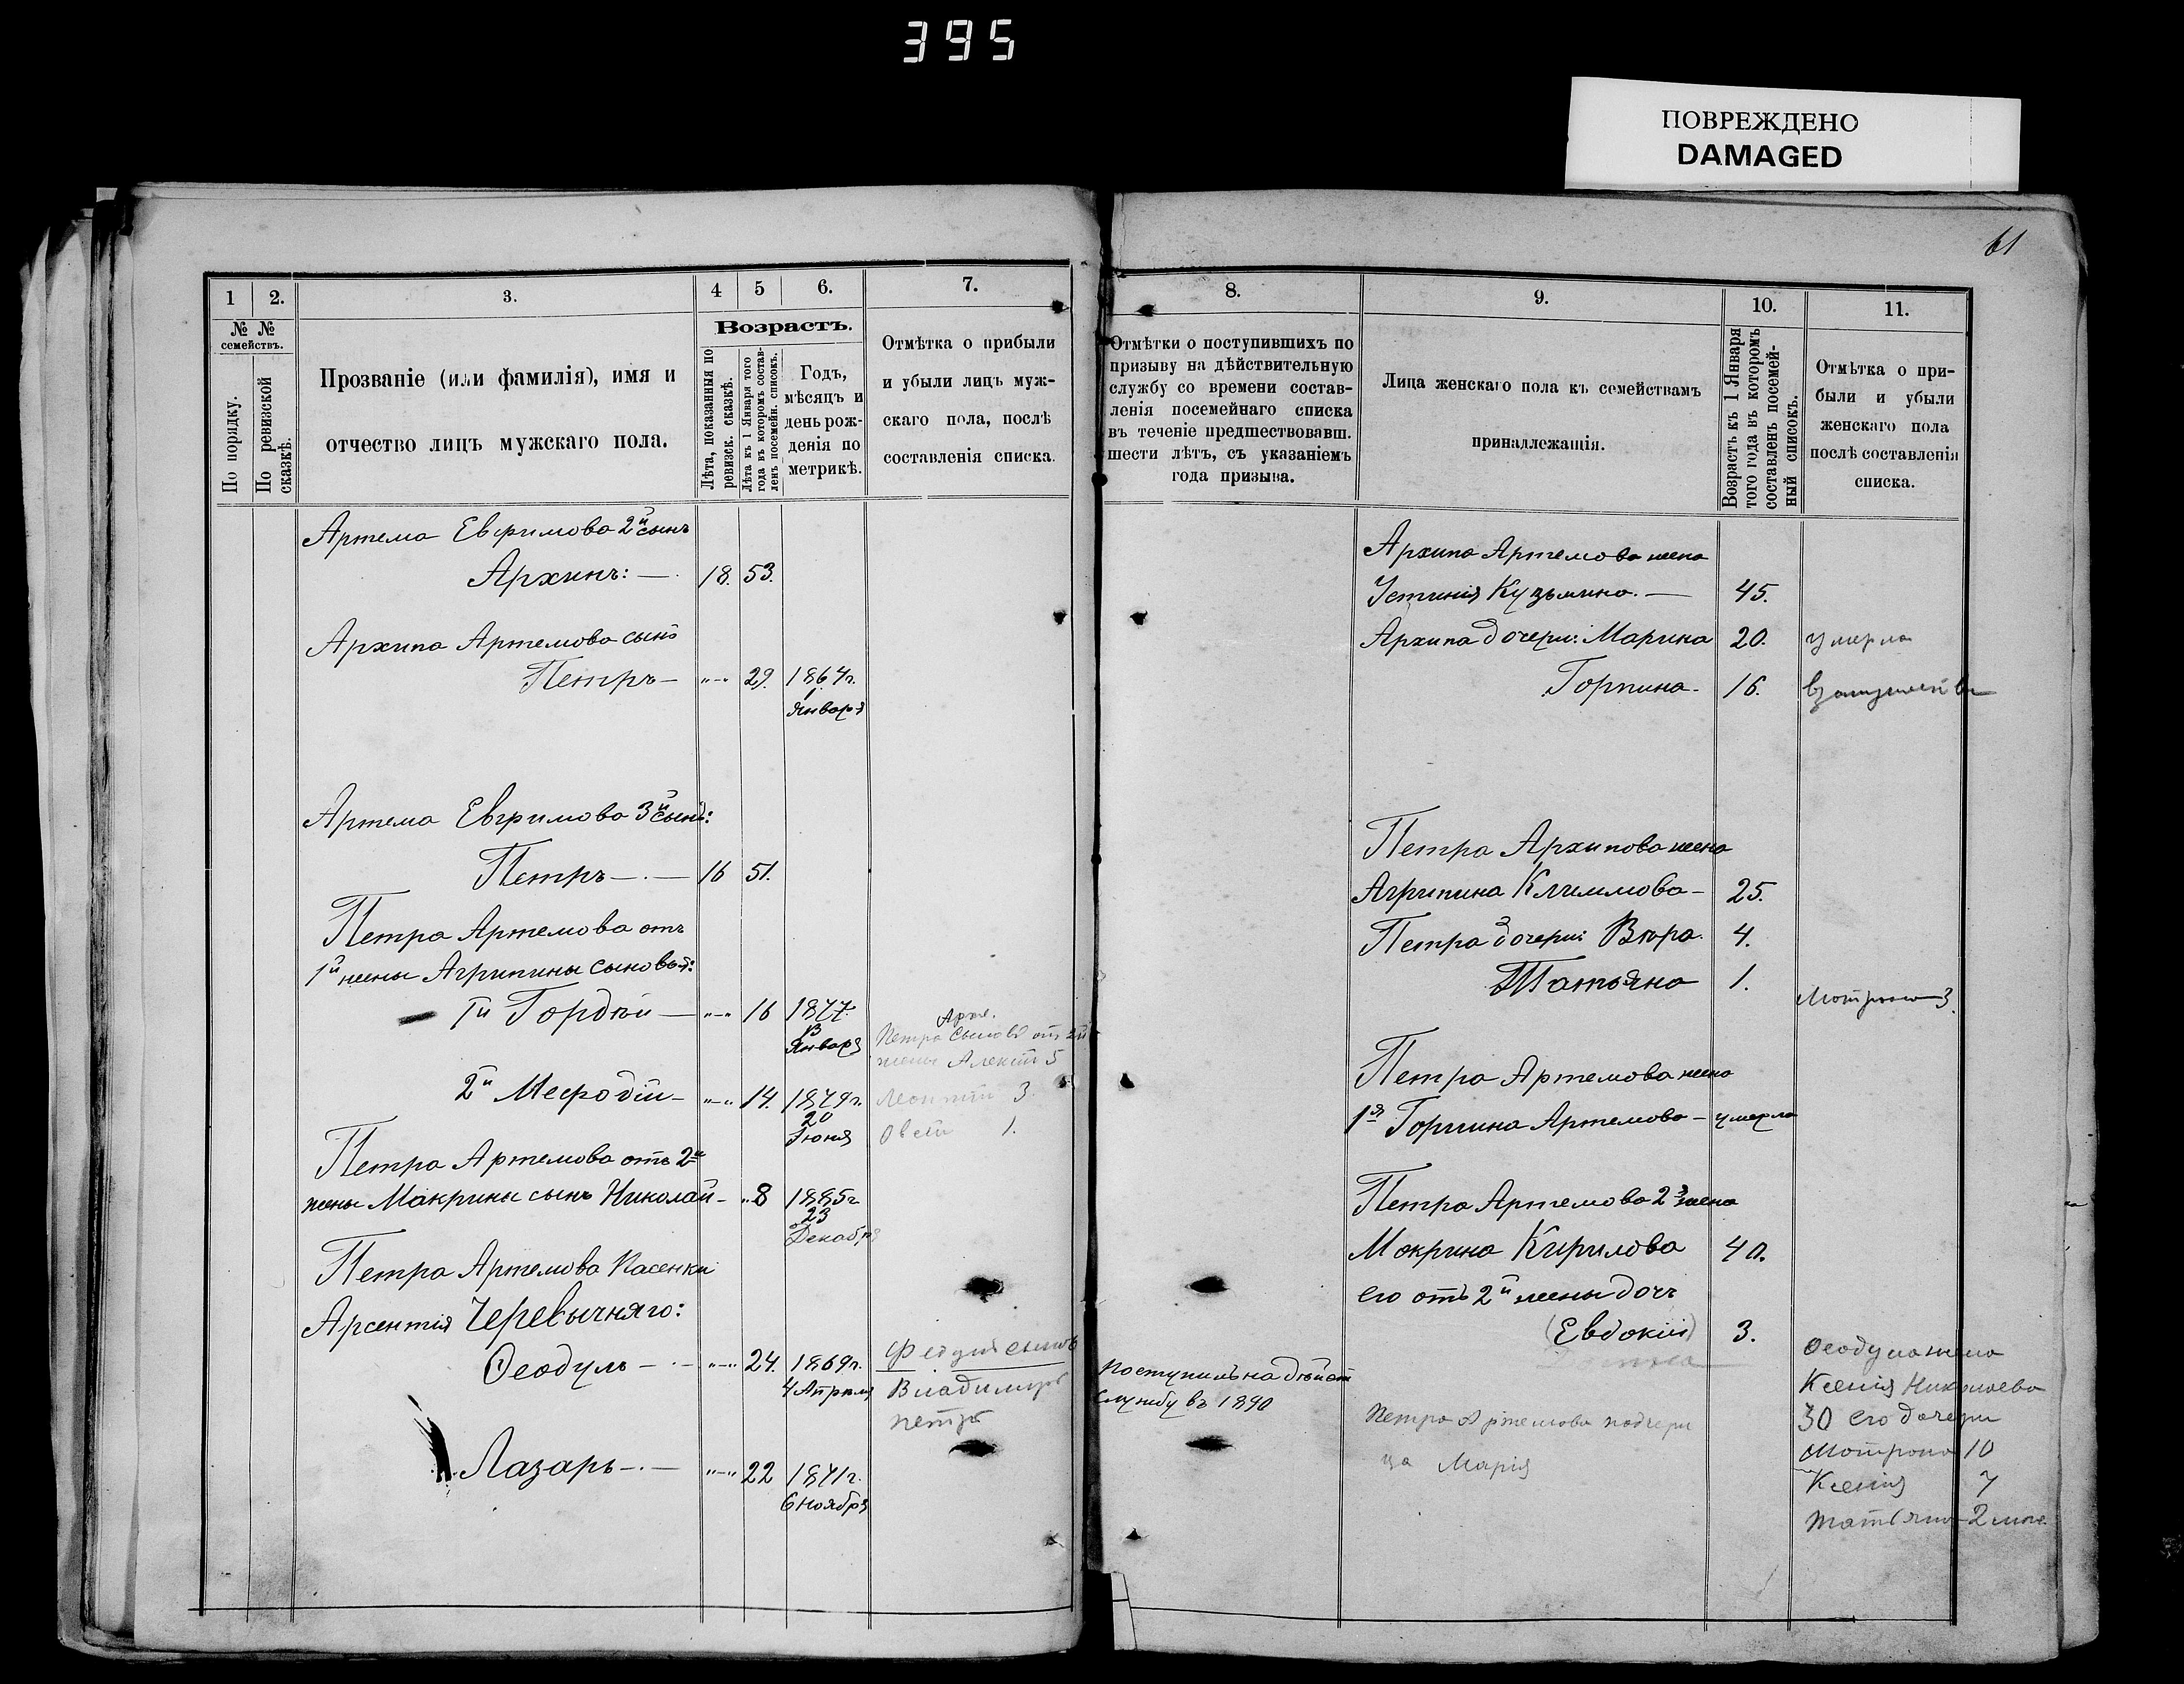 395
ПОВРЕЖДЕНО
DAMAGED
61
1
2.
3.
4
5
6.
7.
№ №
семействъ.
По порядку.
По ревизской
сказкѣ.
Прозваніе (или фамилія), имя и
отчество лицъ мужскаго пола.
Возрастъ.
Лѣта, показанныя по
ревизск. сказкѣ.
Лѣта къ 1 Января того
года въ которомъ состав-
ленъ посемейн. списокъ.
Годъ,
мѣсяцъ и
день рож-
денія по
метрикѣ.
Отмѣтка о прибыли
и убыли лицъ муж-
скаго пола, послѣ
составленія списка.
Артема Евфимова 2й сынъ
Архипъ: — 18. 53.
Архипа Артемова сынъ
Петръ — „—„ 29. 1864г.
1
Января
Артема Евфимова 3й сынъ:
Петръ —.— 16 51.
Петра Артемова отъ
1й жены Агрипины сыновья:
1й Гордѣй — „—„ 16 1877.
13
Января
Петра сыновъ отъ 2й
жены Алексѣй 5
2й Мефодій — „—„ 14. 1879г.
20
Іюня
Леонтій 3.
1.
Петра Артемова отъ 2й
жены Макрины сынъ Николай — „ 8 1885г
23
Декабря
Петра Артемова Пасенки
Арсентія Черевычняго:
Ѳеодулъ — „—„ 24. 1869г.
4 Апрѣля
сынъ
Владимиръ
Петръ
Лазарь —.— „—„ 22 1871г.
6 Ноября
8.
9.
10.
11.
Отмѣтки о поступившихъ по
призыву на дѣйствительную
службу со времени состав-
ленія посемейнаго списка
въ теченіе предшествовавш.
шести лѣтъ, съ указаніемъ
года призыва.
Лица женскаго пола къ семействамъ
принадлежащія.
Возрастъ къ 1 Января
того года въ которомъ
составленъ посемей-
ный списокъ.
Отмѣтка о при-
были и убыли
женскаго пола
послѣ составленія
списка.
Архипа Артемова жена
Устинія Кузьмина. — 45.
Архипа дочери: Марина 20. умерла
Горпина. 16. взамужестве
Петра Архипова жена
Агрипина Климова — 25.
Петра дочери: Вѣра. 4.
Татьяна 1.
Мотрона 3.
Петра Артемова жена
1я Горпина Артемова — умерла
Петра Артемова 2я жена
Мокрина Кирилова 40.
его отъ 2й жены дочь
(Евдокія) 3.
Поступилъ на дѣйст
службу въ 1890
Петра Артемова падчери
ца Марія
Ѳеодула жена
Ксенія Николаева
30 его дочери
Мотрона 10
Ксенія 7
Татьяна 2 мѣс.